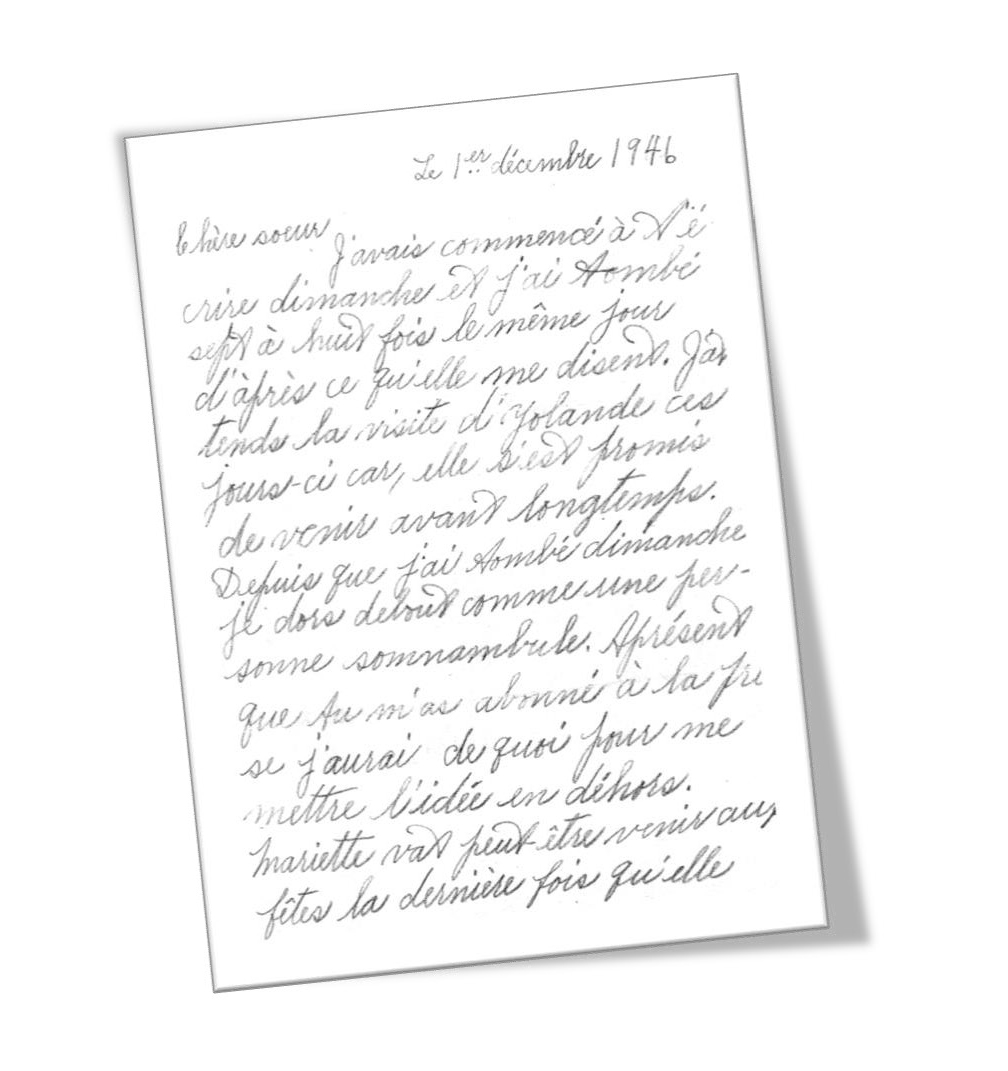 Le 1er décembre 1946
Chère soeur
J'avais commencé à t'é
crire dimanche et j'ai tombé
sept à huit fois le même jour
d'àprès ce qu'elle me disent. J'at
tends la visite d'Yolande ces
jours-ci car, elle s'est promis
de venir avant longtemps.
Depuis que j'ai tombé dimanche
je dors debout comme une per-
sonne somnambule. Aprésent
que tu m'as abonné à la pre
se j'aurai de quoi pour me
mettre l'idée en déhors.
Mariette vat peut-être venir aux
fêtes la dernière fois qu'elle